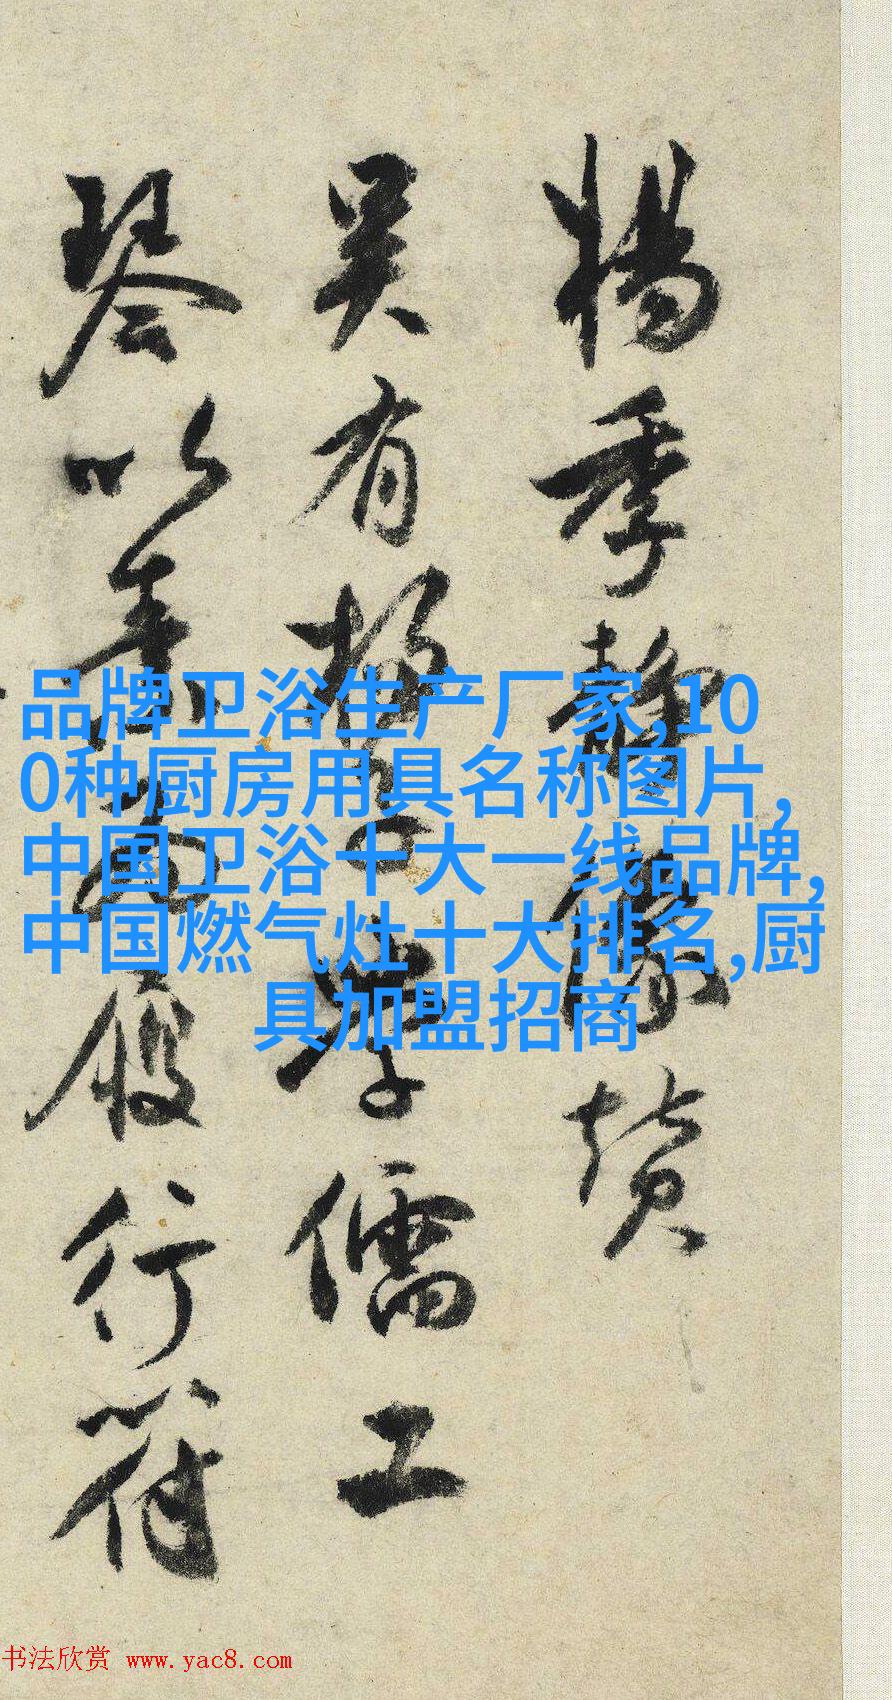 楊季靜像贊
吴有楊子學儒工
琴以善為履行符
品牌卫浴生产厂家,10
0种厨房用具名称图片,
中国卫浴十大一线品牌,
中国燃气灶十大排名,厨
具加盟招商
书法欣赏 www.yac8.com